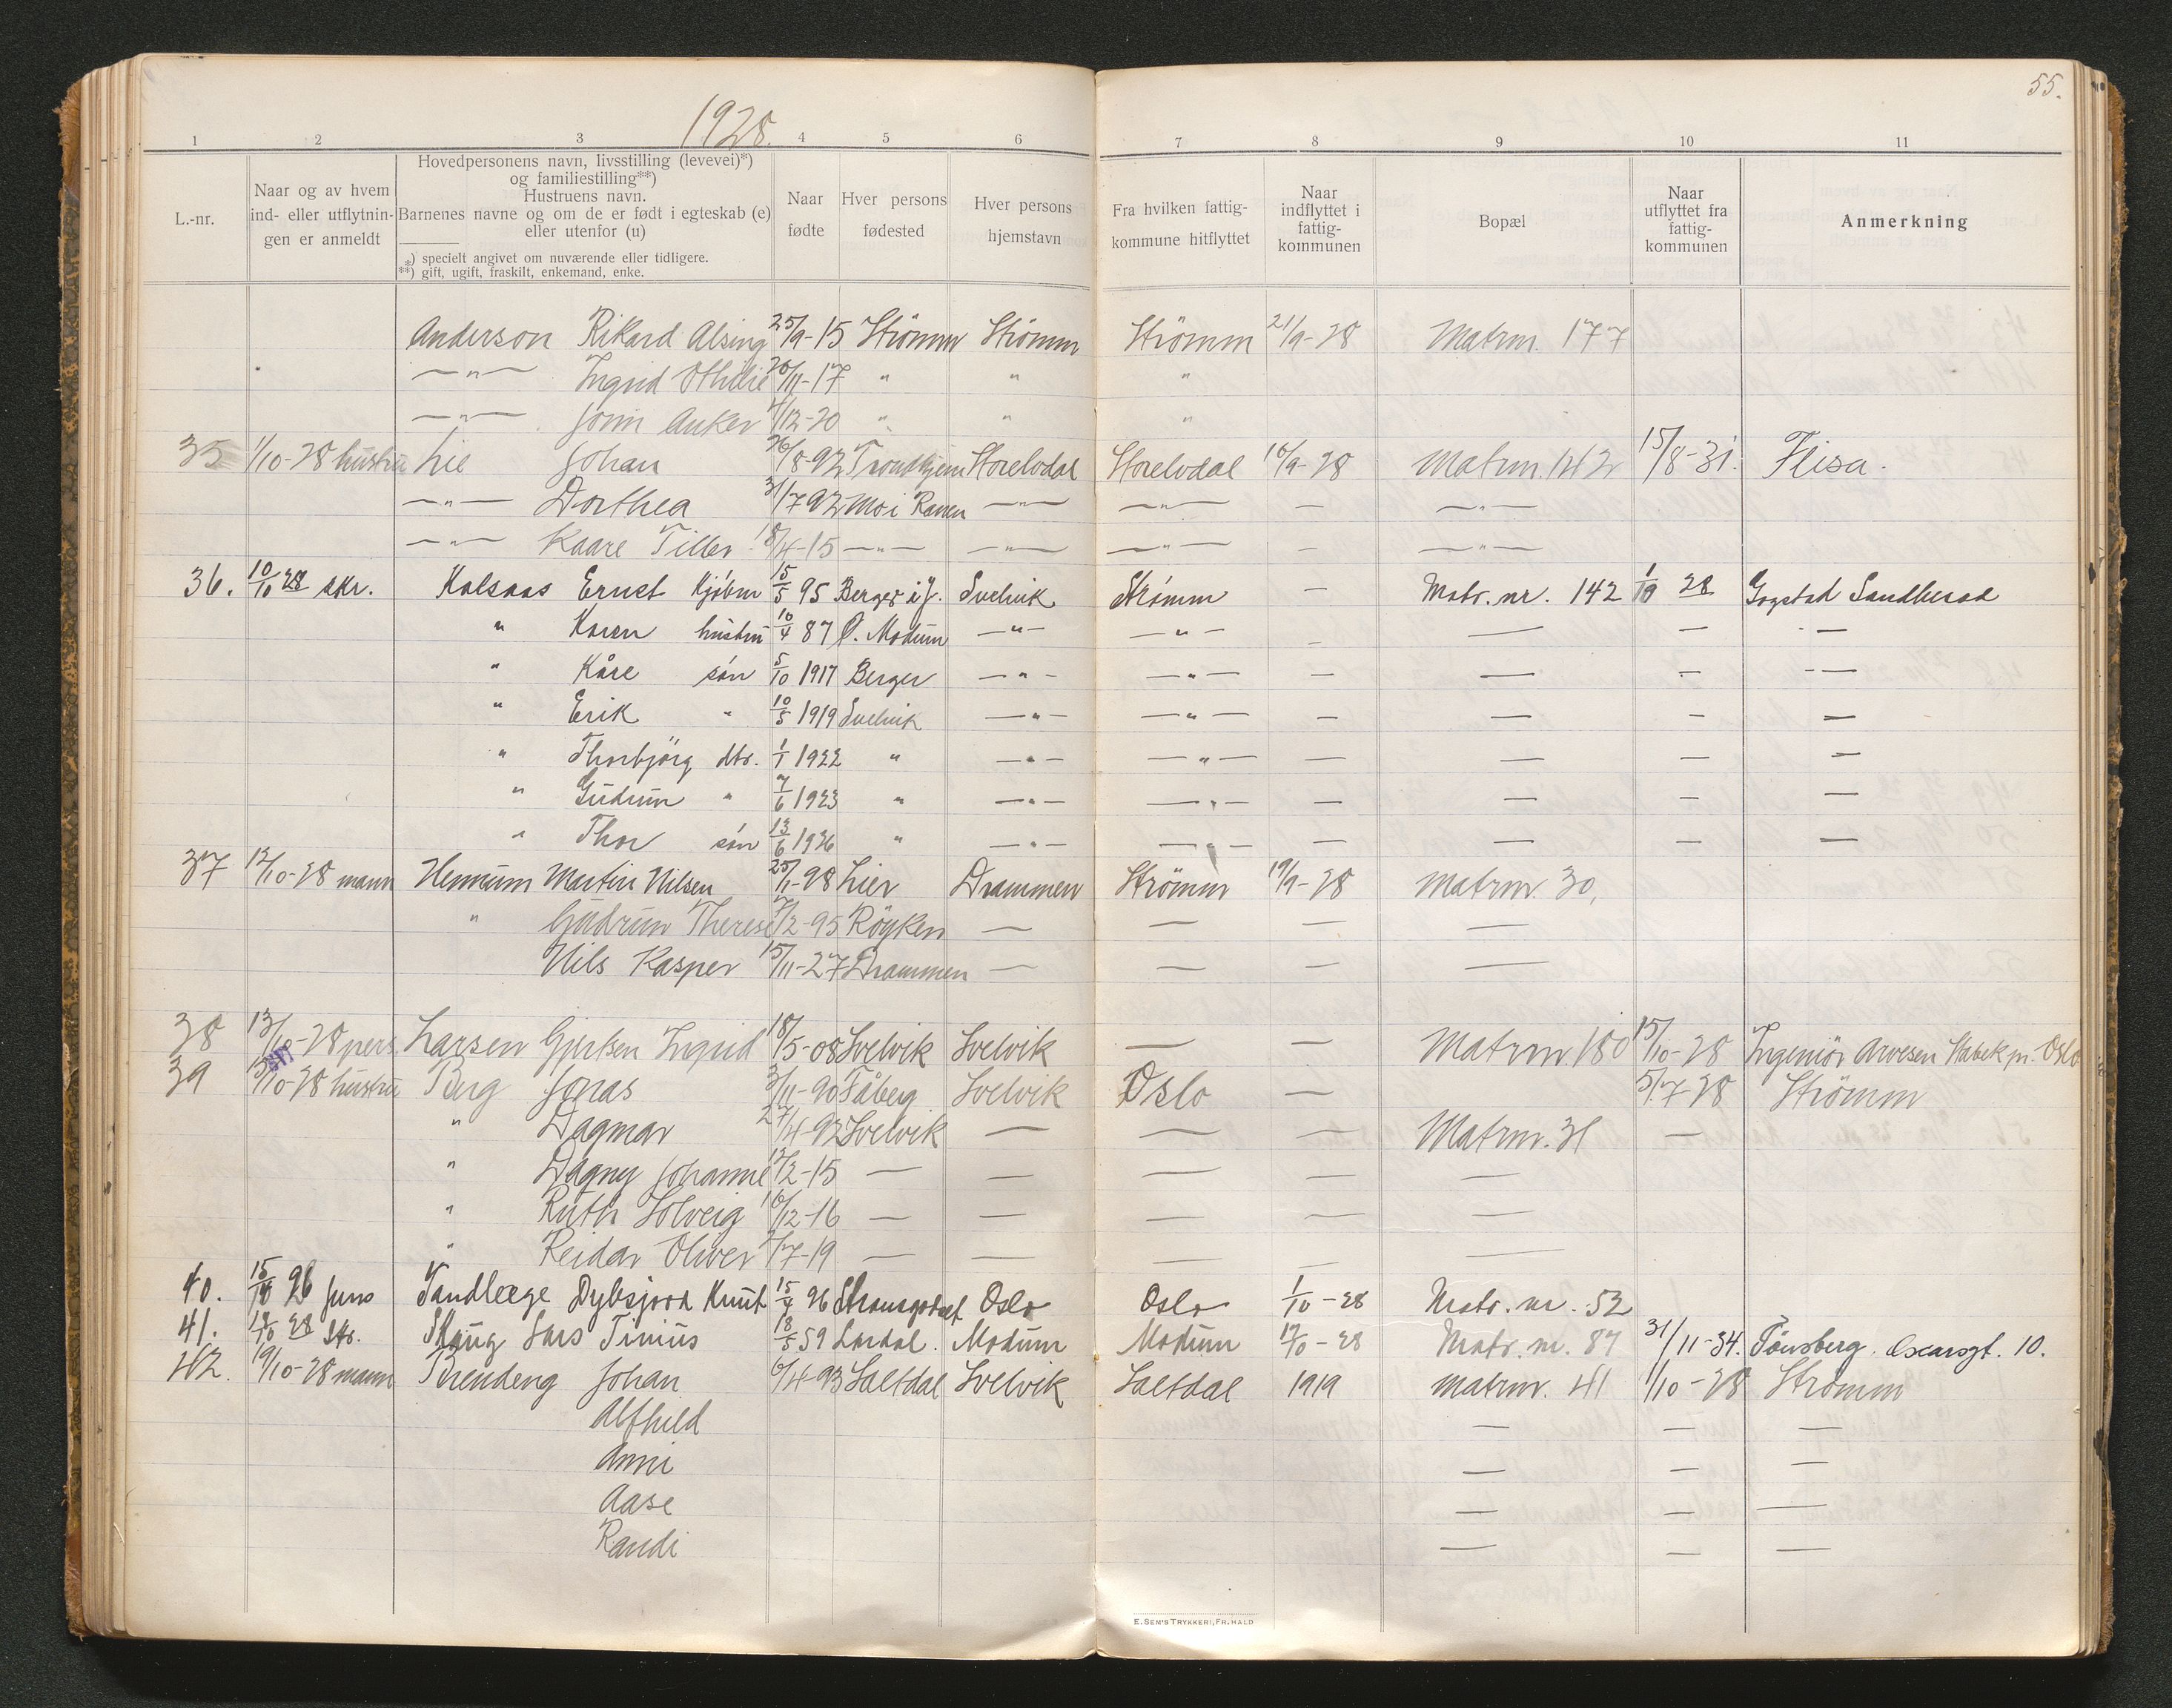 55.
1928.
1 2 3 4 5 6 7 8 9 10 11
L.-nr.
Naar og av hvem
ind- eller utflytnin-
gen er anmeldt
Hovedpersonens navn, livsstilling (levevei)*)
og familiestilling**)
Hustruens navn.
Barnenes navne og om de er født i egteskab (e)
eller utenfor (u)
*) specielt angivet om nuværende eller tidligere.
**) gift, ugift, fraskilt, enkemand, enke.
Naar
fødte
Hver persons
fødested
Hver persons
hjemstavn
Fra hvilken fattig-
kommune hitflyttet
Naar
indflyttet i
fattig-
kommunen
Bopæl
Naar
utflyttet fra
fattig-
kommunen
Anmerkning
Anderson Rikard Alsing 25/9-15 Strömm Strömm Strömm 21/9-28 Matrnr. 177
—"— Ingrid Othilie 20/11-17 " " "
—"— Anker 4/12-20 " " "
35 1/10-28 hustru Lie Johan 26/8-92 Trondhjem Storelvdal Storelvdal 16/9-28 Matrnr. 142 15/8-31. Flisa.
—"— Dorthea 31/7 92 Mo i Ranen —"— —"— — —"—
—"— Kaare Tiller 18/4-15 —"— —"— —"— — —"—
36. 10/10 28 skr. Kolsaas Ernst Kjøbm 15/5 95 Berger i J. Svelvik Strømm — Matr. nr. 142 1/10 28 Gogstad Sandherad
" Karen hustru 10/4 87 Ø. Modum —"— —"— — — — —
" Kåre søn 5/10 1917 Berger —"— —"— — — — —
" Erik " 10/5 1919 Svelvik —"— —"— — — — —
" Thorbjörg dtr. 1/1 1922 " —"— —"— — — — —
" Gudrun " 7/6 1923 " —"— —"— — — — —
" Thor søn 13/6 1926 " —"— —"— — — — —
37 12/10-28 mann Hennum Martin Nilsen 25/1-98 Lier Drammen Strömm 19/9-28 Matrnr. 30.
" Gudrun Therese 7/2-95 Röyken — — — —
Nils Kasper 15/11-27 Drammen — — — —
38 13/10-28 pers. Larsen Gjertsen Ingrid 18/5-08 Svelvik Svelvik — — Matrnr. 180 15/10-28 Ingeniör Arvesen Stabek pr. Oslo
39 15/10-28 hustru Berg Jonas 3/11-90 Fåberg Svelvik Oslo — 5/7-28 Strömm
" Dagmar 27/4-92 Svelvik — — — Matrnr. 31 —
" Dagny Johanne 12/2-15 — — — — —
" Ruth Solveig 16/12-16 — — — — —
" Reidar Oliver 2/7-19 — — — —
40. 15/10 28 Tandlæge Knut 15/4 96 Oslo Oslo 1/10-28 Matr. nr. 52
41. 18/10 28 Skr. Skaug Lars Tinius 18/5 59 Lardal. Modum Modum 17/10-28 Matr. nr. 87 31/11-34. Tønsberg. Oscarsgt. 10.
42. 19/10-28 mann Brendeng Johan 6/4-93 Saltdal Svelvik Saltdal 1919 Matrnr. 41 1/10-28 Strömm
Alfhild — — —
Anni — — —
Aase — — —
Randi — — —
E. SEM'S TRYKKERI, FR. HALD